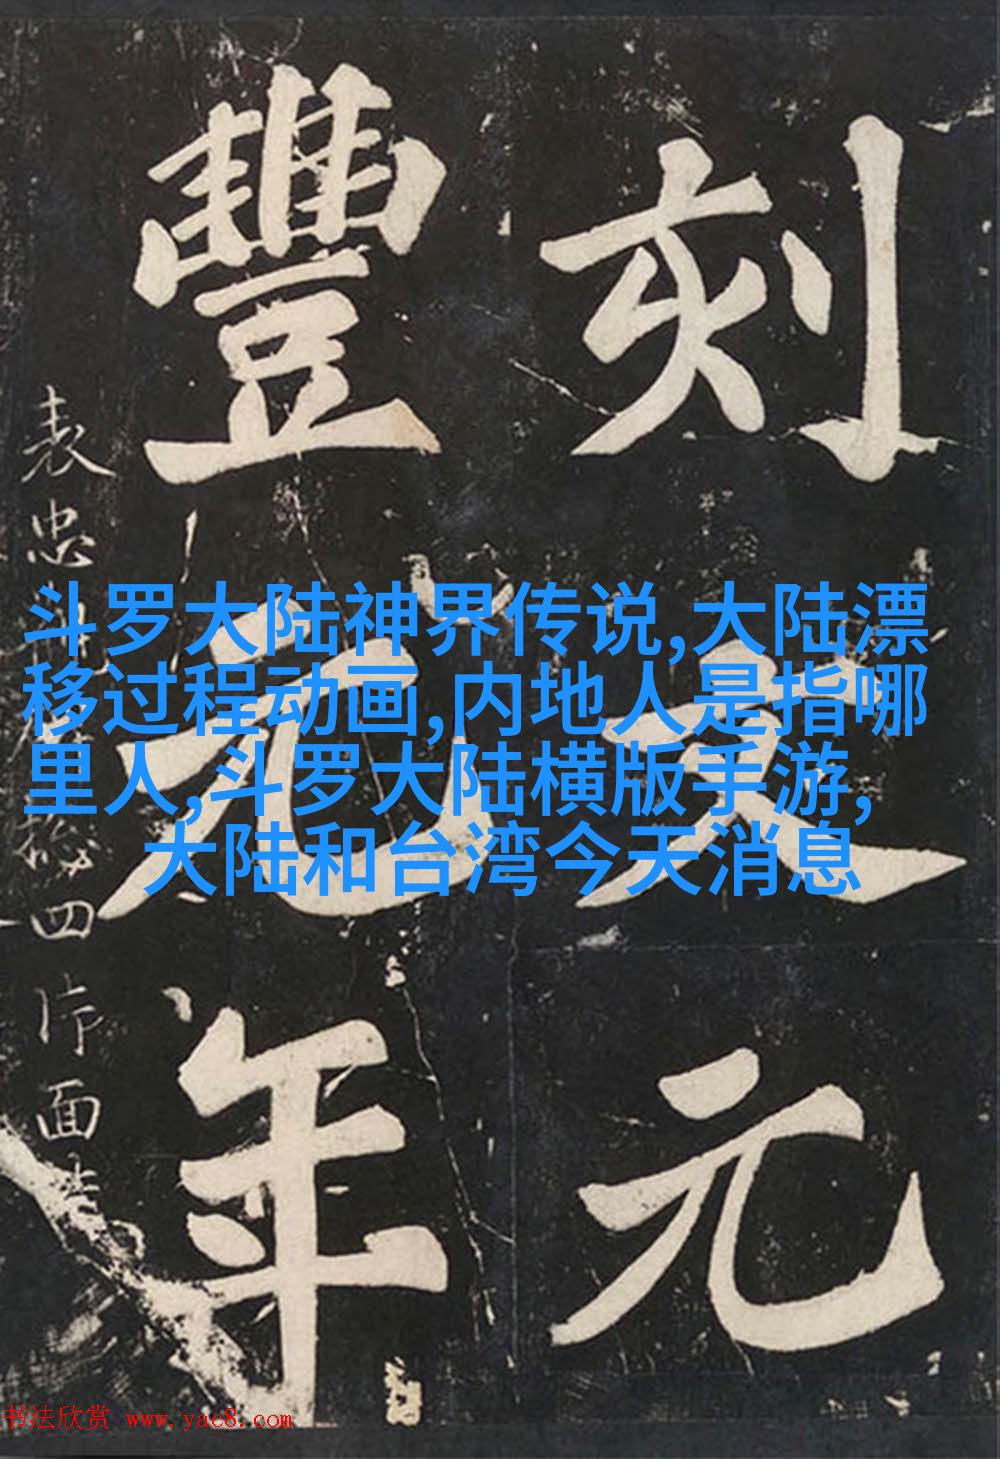 刻文元
豐元年
表忠四片面
斗罗大陆神界传说,大陆漂
移过程动画,内地人是指哪
里人,斗罗大陆横版手游,
大陆和台湾今天消息
书法欣赏 www.yac8.com